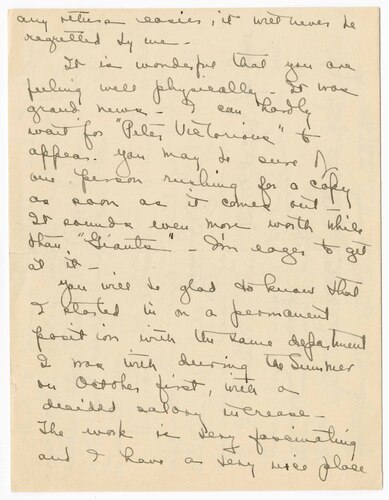 any return easier, it will never be
regretted by me -
It is wonderful that you are
feeling well physically - It was
grand news - I can hardly
wait for "Peter Victorious" to
appear. You may be sure of
one person rushing for a copy
as soon as it comes out -
It sounds even more worth while
than "Giants" - I'm eager to get
at it -
You will be glad to know that
I started in on a permanent
position with the same department
I was with during the Summer
on October first, with a
decided salary increase -
The work is very fascinating
and I have a very nice place